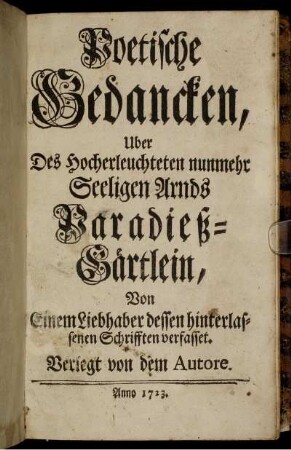 Poetische
Gedancken,
Uber
Des Hocherleuchteten nunmehr
Seeligen Arnds
Paradieß-
Gärtlein,
Von
Einem Liebhaber dessen hinterlas-
senen Schrifften verfasset.
Verlegt von dem Autore.
Anno 1723.